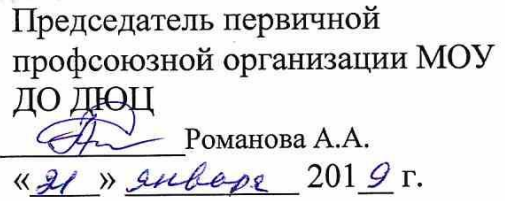 Председатель первичной
профсоюзной организации МОУ
ДО ДЮЦ
Романова А.А.
«21» января 2019 г.